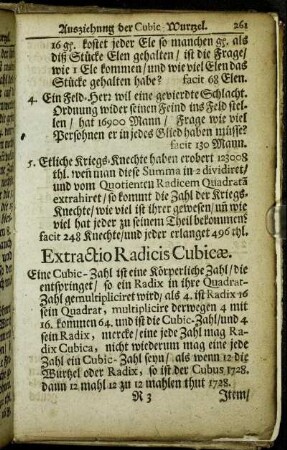 Ausziehung der Cubic-Wurtzel. 261
16 gr. kostet jeder Ele so manchen gr. als
diß Stücke Elen gehalten / ist die Frage/
wie 1 Ele kommen/und wie viel Elen das
Stücke gehalten habe? facit 68 Elen.
4. Ein Feld-Herr wil eine gevierdte Schlacht-
Ordnung wider seinen Feind ins Feld stel-
len / hat 16900 Mann / Frage wie viel
Persohnen er in jedes Glied haben müsse?
facit 130 Mann.
5. Etliche Kriegs-Knechte haben erobert 123008
thl. weñ man diese Summa in 2 dividiret/
und vom Quotienten Radicem Quadratã
extrahiret/so kommt die Zahl der Kriegs-
Knechte/wie viel ist ihrer gewesen/uñ wie
viel hat jeder zu seinem Theil bekommen?
facit 248 Knechte/und jeder erlanget 496 thl.
Extractio Radicis Cubicæ.
Eine Cubic-Zahl ist eine Körperliche Zahl/die
entspringet/ so ein Radix in ihre Quadrat-
Zahl gemultipliciret wird/als 4. ist Radix 16
sein Quadrat, multiplicire derwegen 4 mit
16. kommen 64. und ist die Cubic-Zahl/und 4
sein Radix, mercke/eine jede Zahl mag Ra-
dix Cubica, nicht wiederum mag eine jede
Zahl ein Cubic-Zahl seyn/ als wenn 12 die
Wurtzel oder Radix, so ist der Cubus 1728.
dann 12 mahl 12 zu 12 mahlen thut 1728.
R 3 Item/